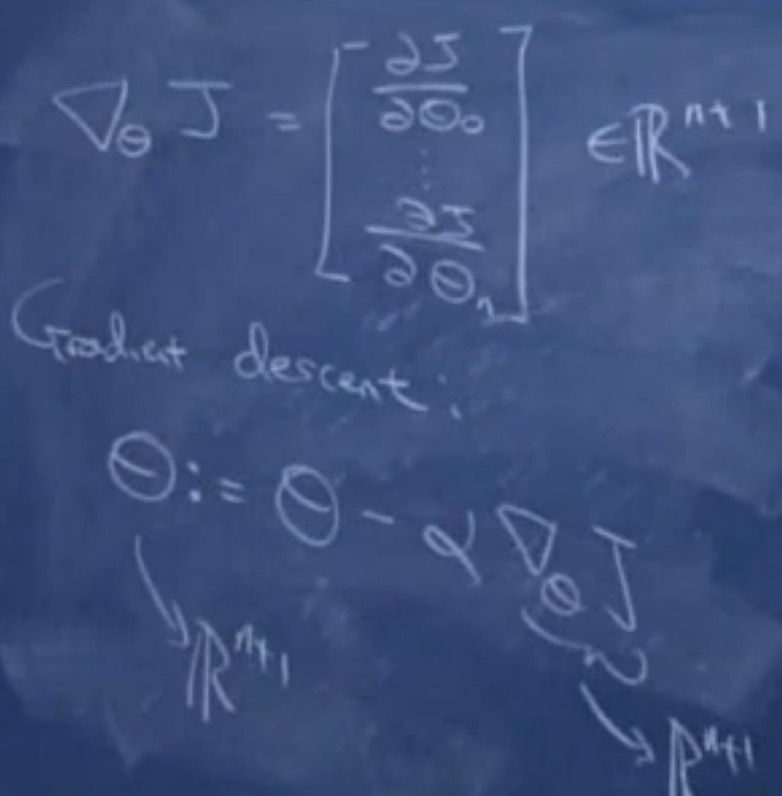 ∇_θ J = [ ∂J/∂θ₀ ⋮ ∂J/∂θₙ ] ∈ ℝⁿ⁺¹
Gradient descent:
θ := θ - α ∇_θ J
ℝⁿ⁺¹
ℝⁿ⁺¹